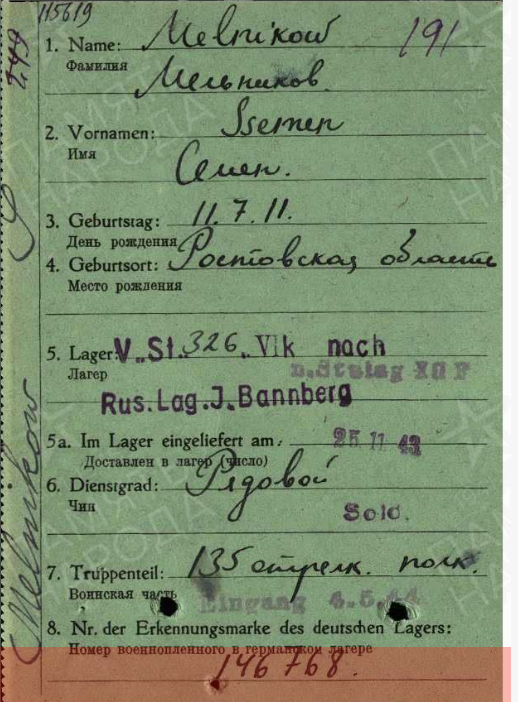 115619
249
191
1. Name: Melnikow
Фамилия
Мельников.
2. Vornamen: Ssemen
Имя
Семен.
3. Geburtstag: 11.7.11.
День рождения
4. Geburtsort: Ростовская область
Место рождения
5. Lager: V. St. 326 „VIk nach
Лагер
n. Stalag XII F
Rus. Lag. J. Bannberg
5a. Im Lager eingeliefert am: 25 11 43
Доставлен в лагер (число)
6. Dienstgrad: Рядовой
Чин
Sold.
7. Truppenteil: 135 стрелк. полк.
Воинская часть
Eingang 4.5.44
8. Nr. der Erkennungsmarke des deutschen Lagers:
Номер военнопленного в германском лагере
146768.
Melnikow S
ПАМЯТЬ
НАРОДА